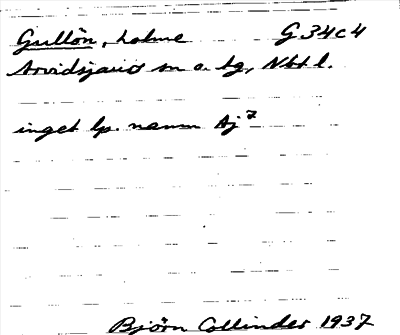 Gullön, holme G 34c4
Arvidsjaurs sn o. tg, Nbt l.
inget lp. namn Aj 7
Björn Collinder 1937